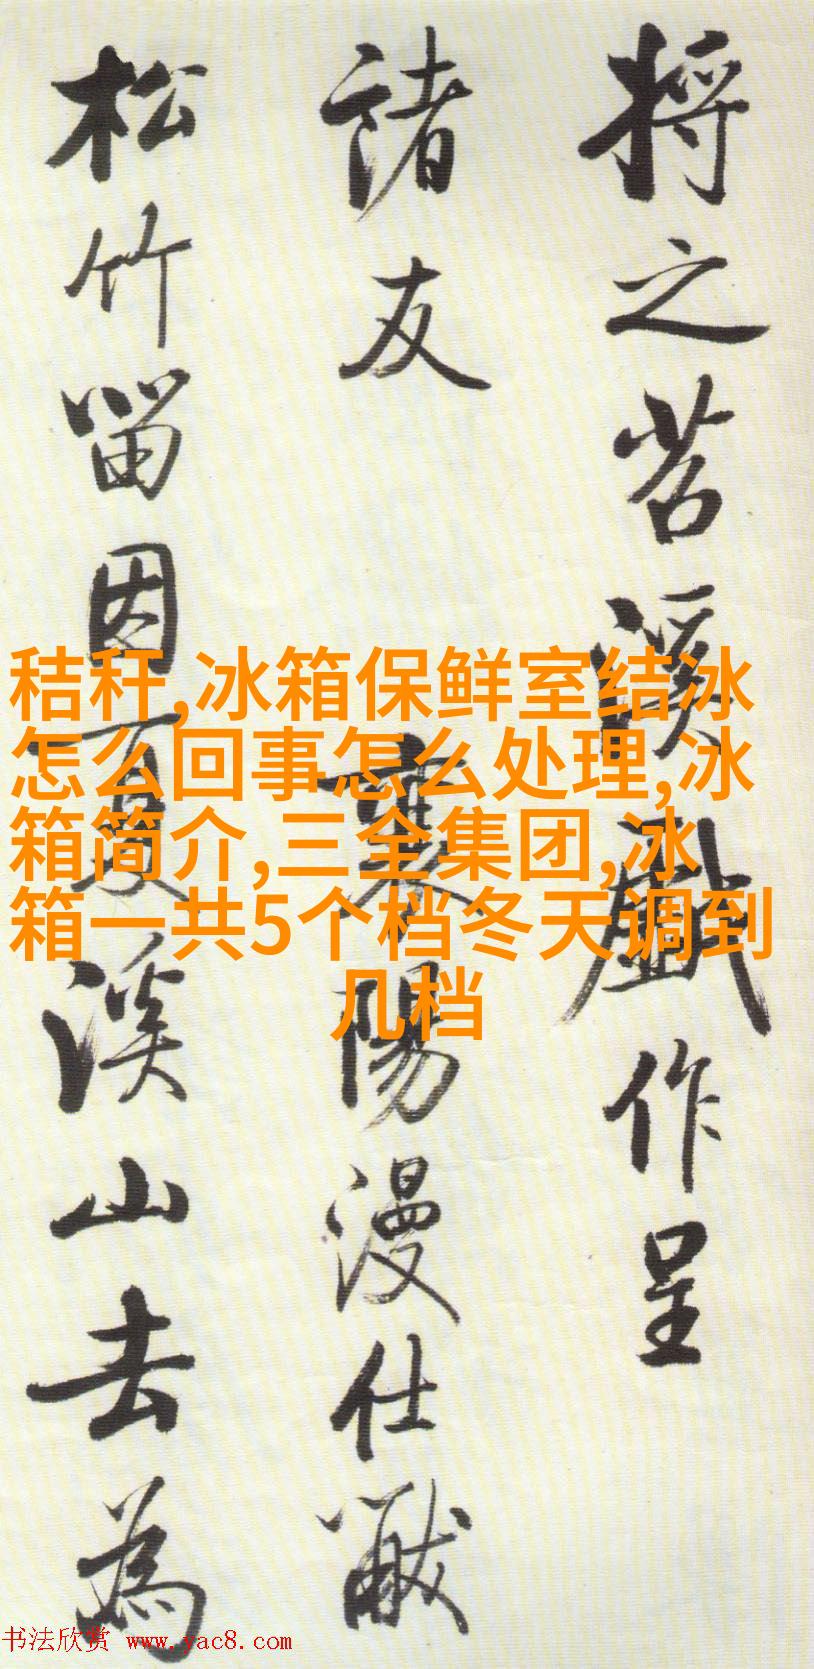 将之苕溪戏作呈
諸友
襄陽漫仕黻
松竹留因夏溪山去為
秸秆,冰箱保鲜室结冰
怎么回事怎么处理,冰
箱简介,三全集团,冰
箱一共5个档冬天调到
几档
书法欣赏 www.yac8.com